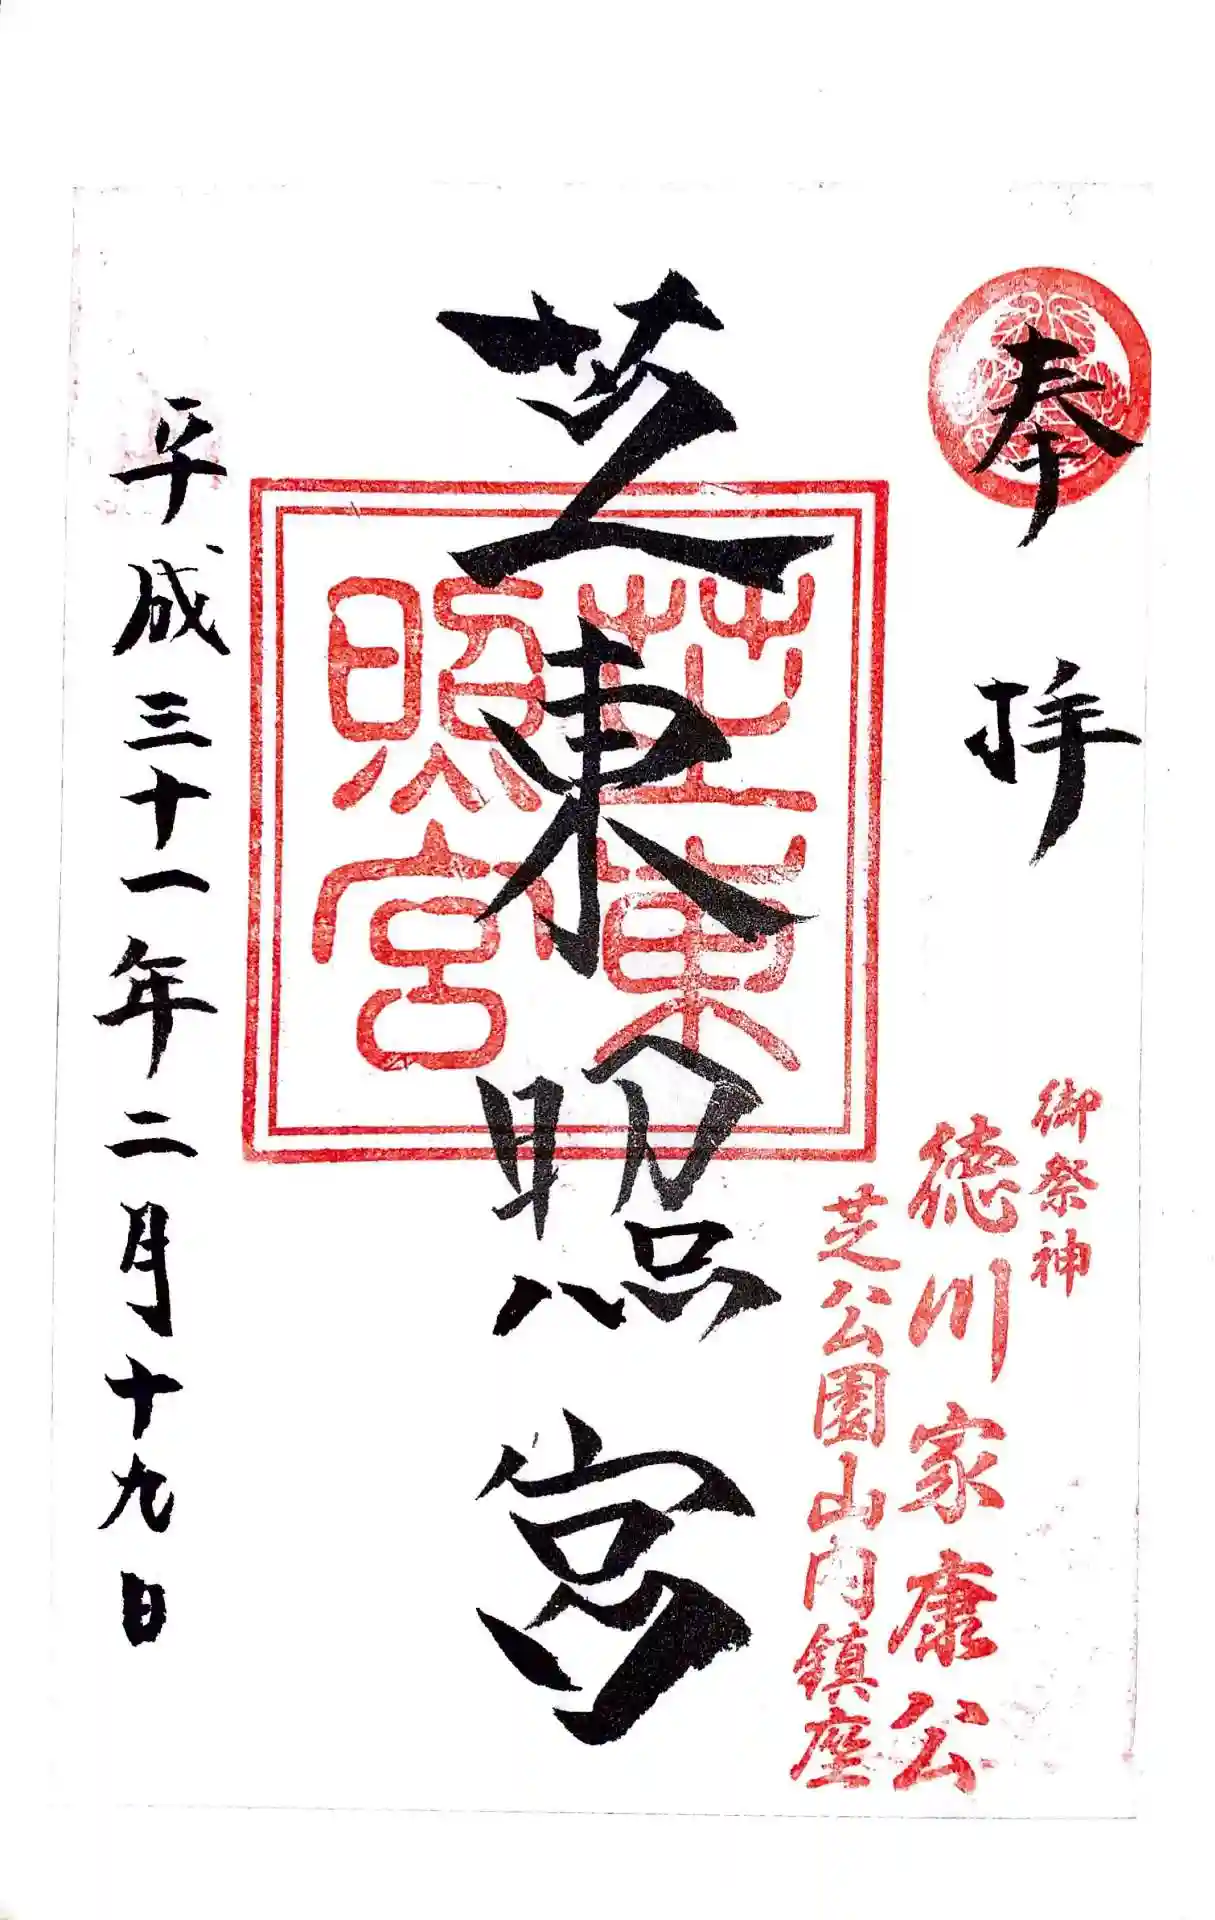 奉拝
御祭神
徳川家康公
芝公園山内鎮座
芝東照宮
芝東
照宮
平成三十一年二月十九日